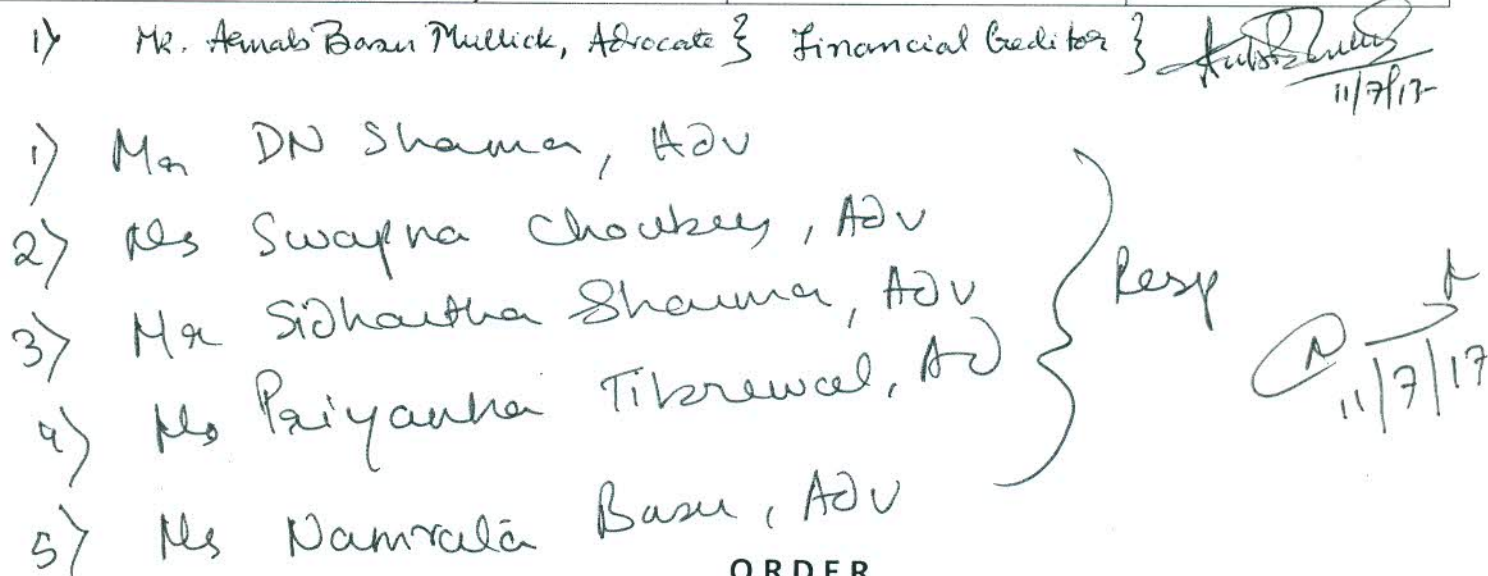 1) Mr. Arnab Basu Mullick, Advocate } Financial Creditor }
11/7/17
1) Mr DN Sharma, Adv
2) Ms Swapna Choubey, Adv
3) Mr Sidhartha Sharma, Adv
4) Ms Priyanka Tibrewal, Ad
5) Ms Namrata Basu, Adv
} Resp
11/7/17
ORDER